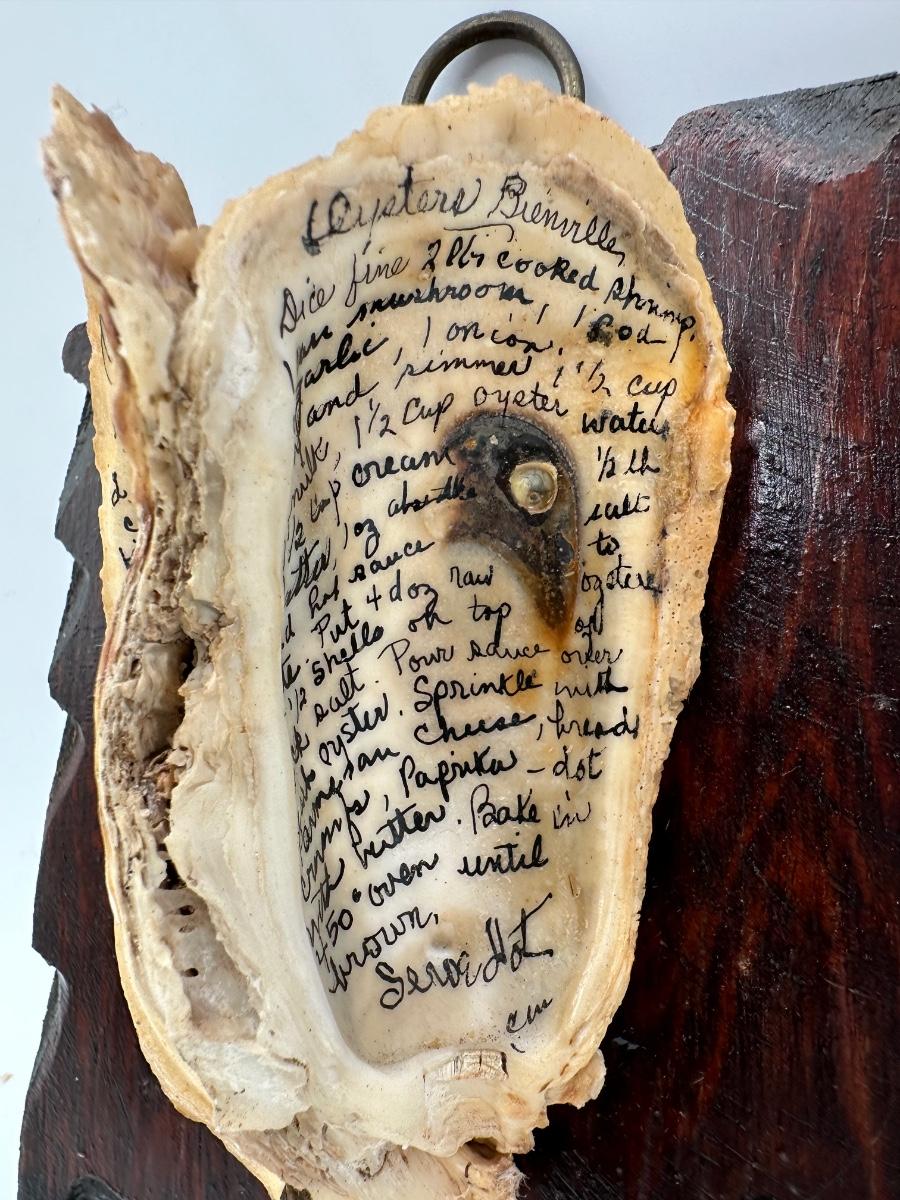 Oysters Bienville
Dice fine 2 lbs cooked shrimp,
mushroom, 1 Pod
garlic, 1 onion,
and simmer 1 1/2 cup
milk, 1 1/2 cup oyster water
1/2 cup cream 1/2 lb
1 oz absinthe salt
d hot sauce to
te. Put 4 doz raw oysters
1/2 shells on top of
ck salt. Pour sauce over
oyster. Sprinkle with
Parmesan cheese, bread
crumbs, Paprika - dot
with butter. Bake in
450° oven until
brown,
Serve Hot
d
c